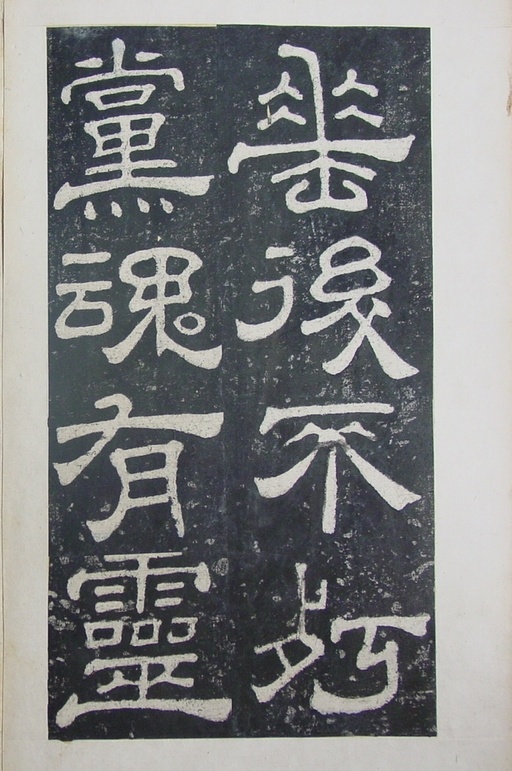 垂後不朽
黨魂有靈